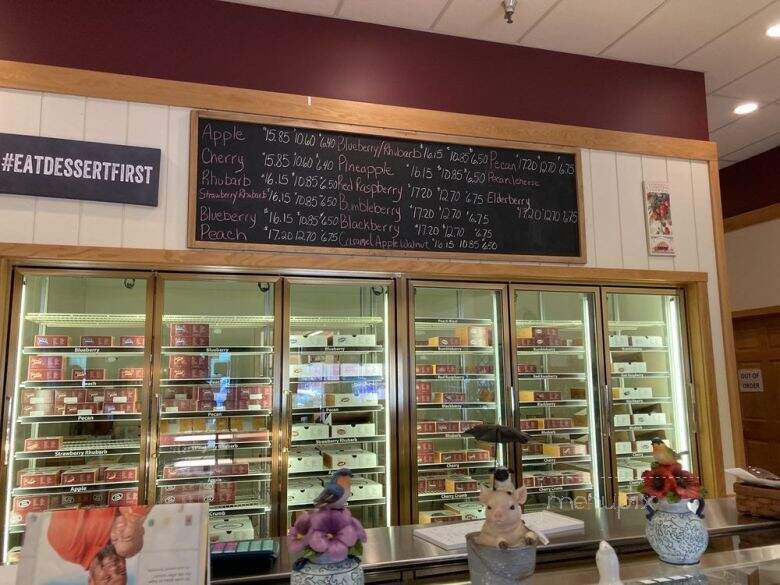 #EATDESSERTFIRST
Apple $15.85 10.60 $6.40
Cherry $15.85 10.60 $6.40
Rhubarb $16.15 10.85 6.50
Strawberry Rhubarb $16.15 10.85 6.50
Blueberry $16.15 10.85 $6.50
Peach $17.20 12.70 6.75
Blueberry/Rhubarb $16.15 10.85 $6.50
Pineapple $16.15 10.85 $6.50
Red Raspberry $17.20 12.70 6.75
Bumbleberry $17.20 12.70 $6.75
Blackberry $17.20 $12.70 6.75
Caramel Apple Walnut $16.15 10.85 6.50
Pecan $17.20 $12.70 $6.75
Elderberry
$17.20 12.70 6.75
Blueberry
Blueberry
Blueberry
Peach
Peach
Pecan
Pecan
Pecan
Strawberry Rhubarb
Strawberry Rhubarb
Strawberry Rhubarb
Apple
Apple
Apple
Bumbleberry
Bumbleberry
Red Raspberry
Blackberry
Blackberry
Cherry
Cherry
Cherry Crumb
Cherry Crumb
OUT OF
ORDER
menupix